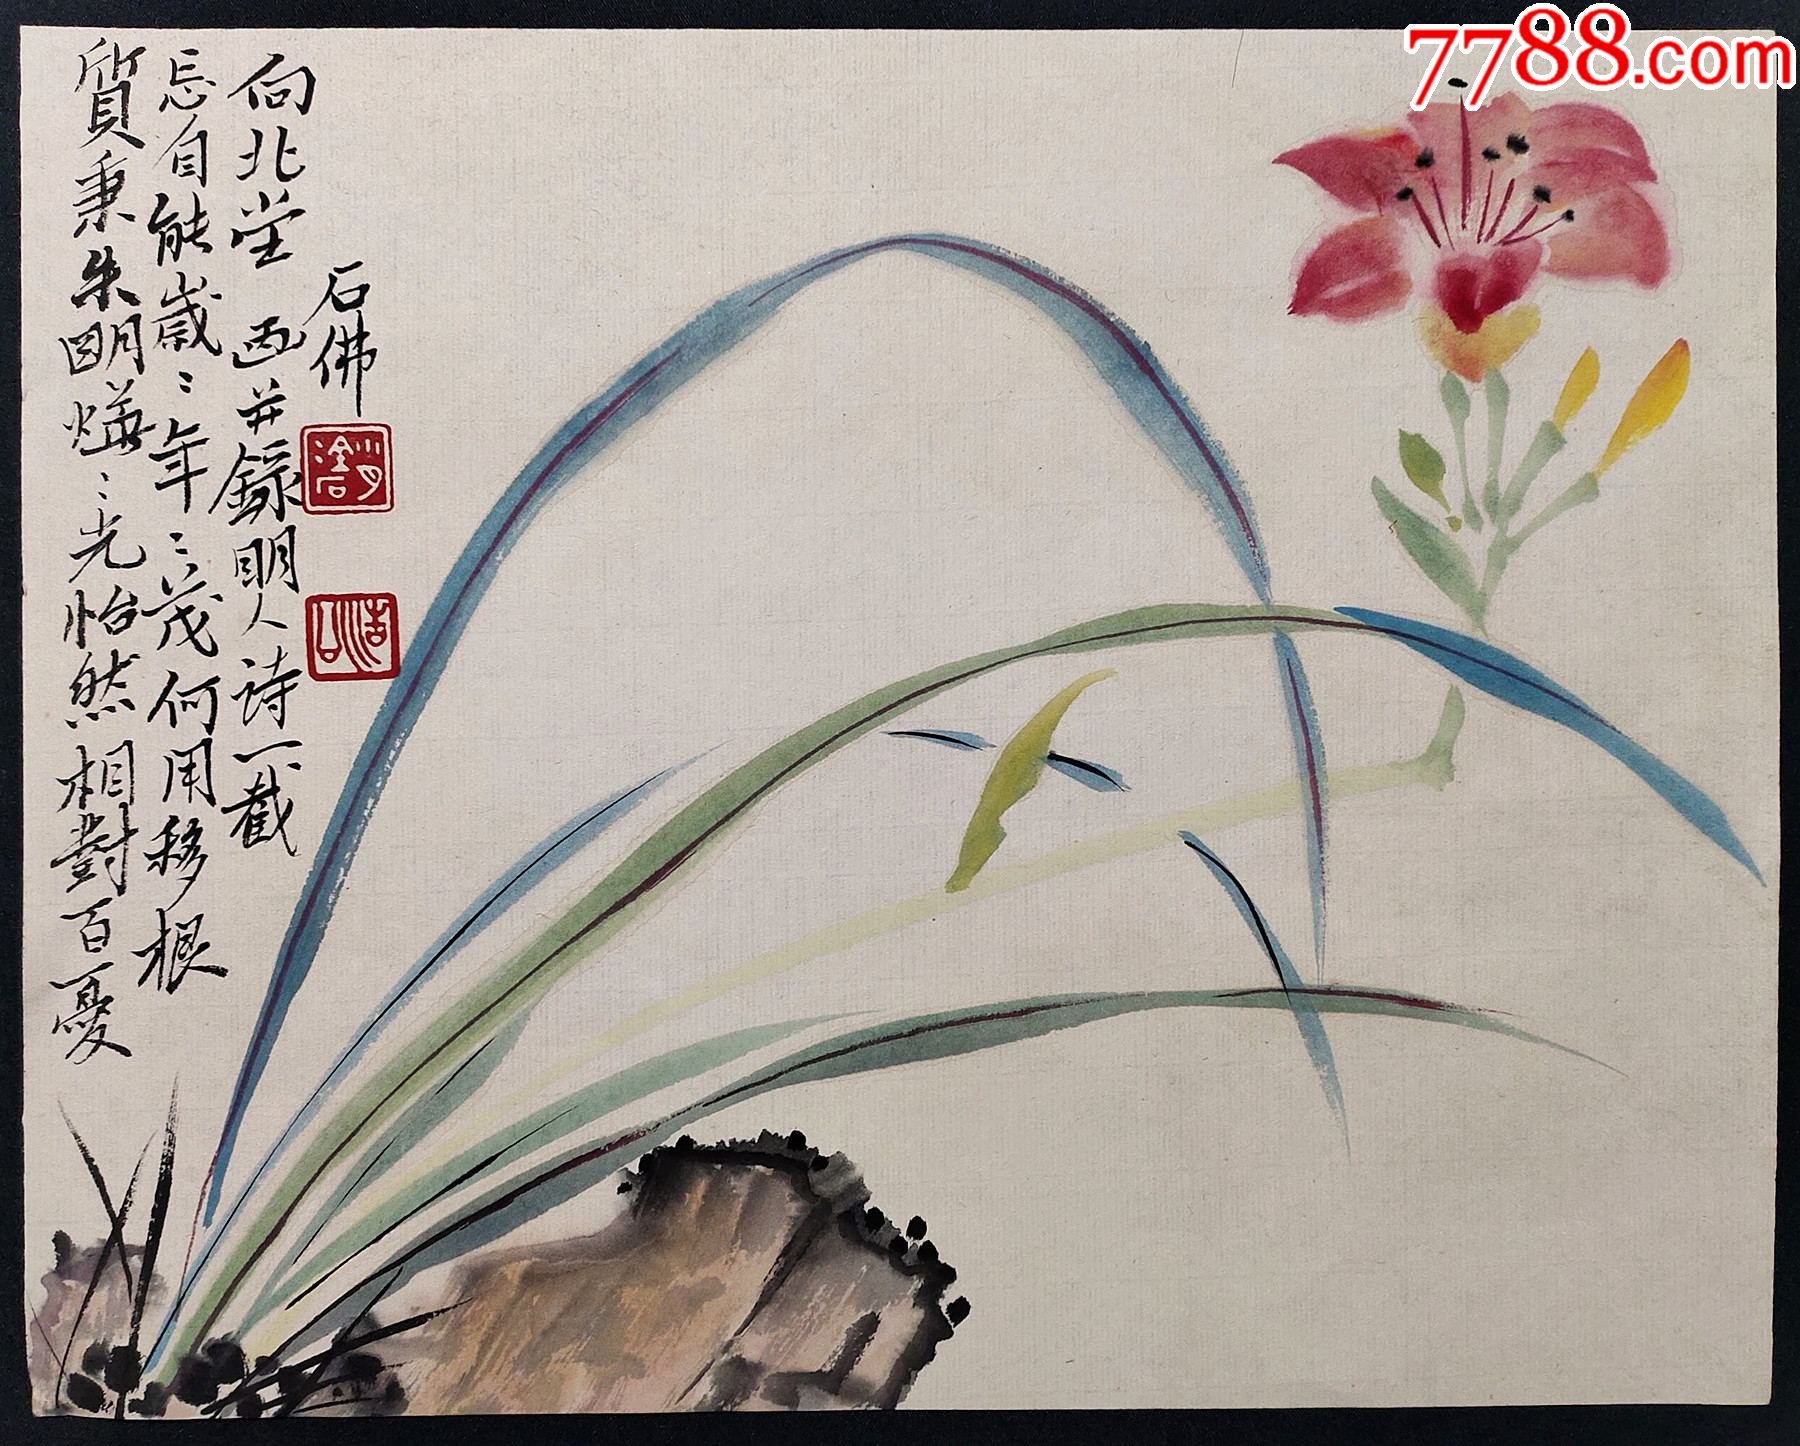 7788.com
質秉朱明燁〻光怡然相對百憂
忘自能歲〻年〻茂何用移根
向北堂 画并錄明人诗一截
石佛